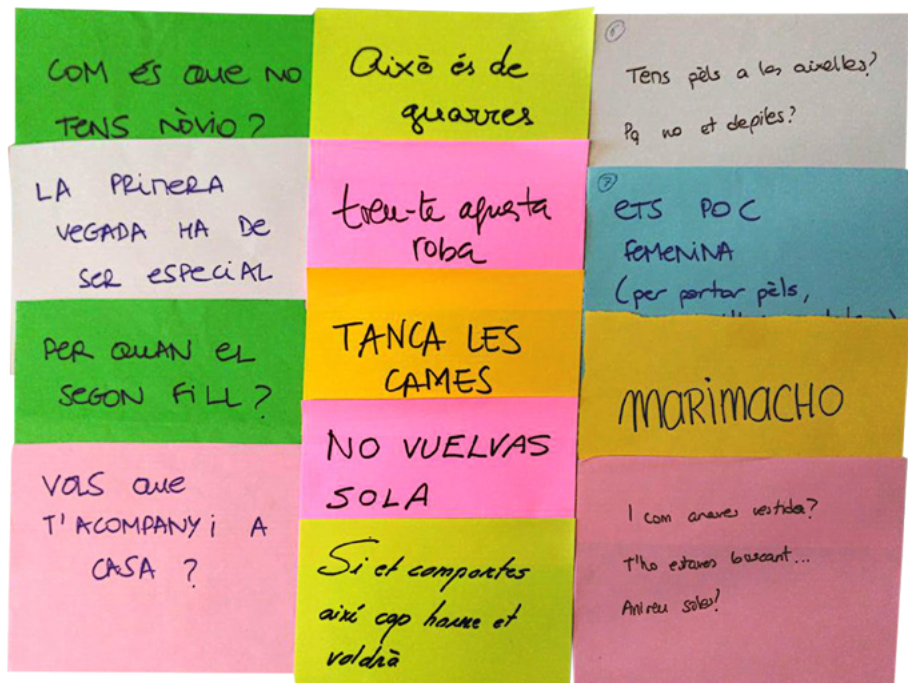 COM éS QUE NO
TENS NÒVIO?
LA PRIMERA
VEGADA HA DE
SER ESPECIAL
PER QUAN EL
SEGON FILL?
VOLS QUE
T'ACOMPANYi A
CASA ?
Això és de
guarres
treu-te aquesta
roba
TANCA LES
CAMES
NO VUELVAS
SOLA
Si et comportes
així cap home et
voldrà
6
Tens pèls a les aixelles?
Pq no et depiles?
7
ETS POC
FEMENINA
(per portar pèls,
MARIMACHO
I com anaves vestida?
T'ho estaves buscant...
Anireu soles?